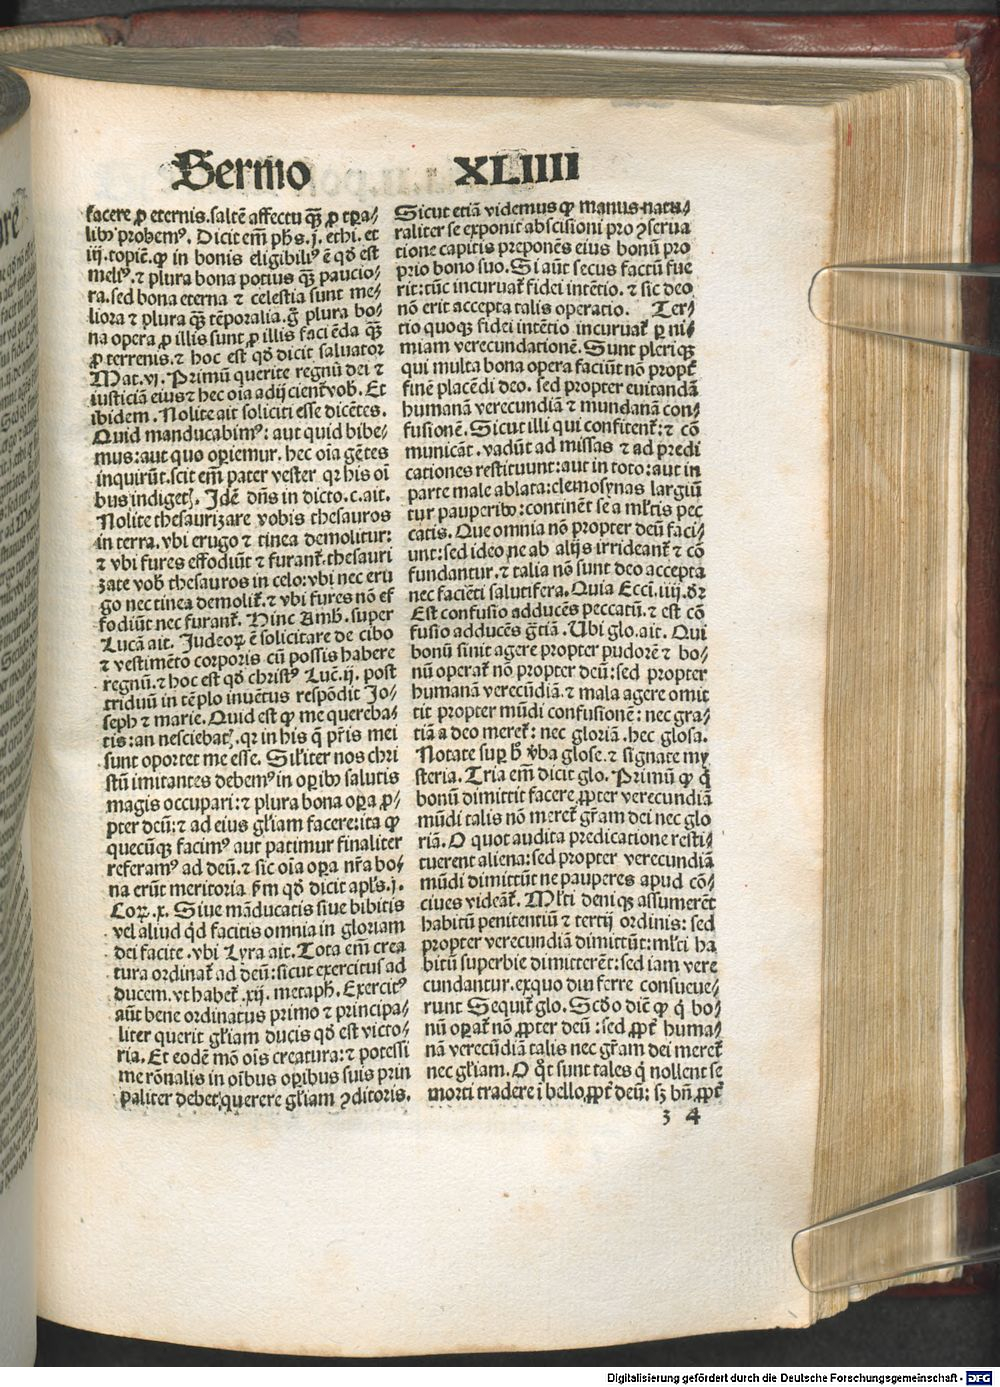 Sermo XLIIII
facere ꝓ eternis. saltē affectu qȝ̄ ꝓ tꝑa⸗
libꝰ ꝓhemꝰ. Dicit em̄ ph̄s. j. ethi. et
iij. topic̄. ꝙ in bonis eligibiliꝰ ē qď est
melꝰ. ⁊ plura bona potius qȝ̄ paucio⸗
ra. sed bona eterna ⁊ celestia sunt me⸗
liora ⁊ plura qȝ̄ tēporalia. g̃ plura bo⸗
na opera ꝓ illis sunt ꝓ illis faciēda qȝ̄
ꝓ terrenis. ⁊ hoc est qď dicit saluator
Mat. vi. Primū querite regnū dei ⁊
iusticiā eius ⁊ hec oīa adijcient̃ vob̃. Et
ibidem. Nolite ait soliciti esse dicētes.
Quid manducabimꝰ: aut quid bibe⸗
mus: aut quo opiemur. hec oīa gētes
inquirūt. scit em̄ pater vester qꝛ his oī
bus indigetꝭ. Idē dn̄s in dicto. c. ait.
Nolite thesaurizare vobis thesauros
in terra. vbi erugo ⁊ tinea demolitur:
⁊ vbi fures effodiūt ⁊ furant̃. thesauri
zate vob̃ thesauros in celo: vbi nec eru
go nec tinea demolit̃. ⁊ vbi fures nō ef
fodiūt nec furant̃. Hinc Amb̃. super
Lucā ait. Judeoꝝ ē solicitare de cibo
⁊ vestimēto corporis cū possis habere
regnū. ⁊ hoc est qď christꝰ Luc̄. ij. post
triduū in tēplo inuētus respōdit Jo⸗
seph ⁊ marie. Quid est ꝙ me quereba⸗
tis: an nesciebatꝭ. qꝛ in his q̄ pr̄is mei
sunt oportet me esse. Sil̃iter nos chri
stū imitantes debemꝰ in oꝑibꝰ salutis
magis occupari: ⁊ plura bona oꝑa ꝓ⸗
pter deū: ⁊ ad eius gl̃iam facere: ita ꝙ
quecūqȝ facimꝰ aut patimur finaliter
referamꝰ ad deū. ⁊ sic oīa oꝑa nr̄a bo⸗
na erūt meritoria ẜm qď dicit apl̃s. j.
Coꝝ. x. Siue māducatis siue bibitis
vel aliud qd̄ facitis omnia in gloriam
dei facite. vbi Lyra ait. Tota em̄ crea
tura ordinat̃ ad deū: sicut exercitus ad
ducem. vt habet̃. xij. metaph̃. Exercitꝰ
aūt bene ordinatus primo ⁊ principa⸗
liter querit gl̃iam ducis qď est victo⸗
ria. Et eodē mō oīs creatura: ⁊ potessi
me rōnalis in oībus oꝑibus suis prin
paliter debet querere gl̃iam ꝯditoris.
Sicut etiā videmus ꝙ manus natu⸗
raliter se exponit abscisioni pro ꝯserua
tione capitis preponēs eius bonū pro
prio bono suo. Si aūt secus factū fue
rit: tūc incuruat̃ fidei intētio. ⁊ sic deo
nō erit accepta talis operatio. Ter⸗
tio quoqȝ fidei intētio incuruat̃ ꝑ ni⸗
miam verecundationē. Sunt pleriqȝ
qui multa bona opera faciūt nō propt̃
finē placēdi deo. sed propter euitandā
humanā verecundiā ⁊ mundanā con⸗
fusionē. Sicut illi qui confitent̃: ⁊ cō
municāt. vadūt ad missas ⁊ ad predi
cationes restituunt: aut in toto: aut in
parte male ablata: elemosynas largiū
tur pauperibꝰ: continēt se a ml̃tis pec
catis. Que omnia nō propter deū faci⸗
unt: sed ideo ne ab alijs irrideant̃ ⁊ cō
fundantur. ⁊ talia nō sunt deo accepta
nec faciēti salutifera. Quia Ecc̄i. iiij. dr̄
Est confusio adducēs peccatū. ⁊ est cō
fusio adducēs gr̄tiā. Ubi glo. ait. Qui
bonū sinit agere propter pudorē ⁊ bo⸗
nū operat̃ nō propter deū: sed propter
humanā verecūdiā. ⁊ mala agere omit
tit propter mūdi confusionē: nec gra⸗
tiā a deo meret̃: nec gloriā. hec glosa.
Notate suꝑ h̄ v̄ba glose. ⁊ signate my
steria. Tria em̄ dicit glo. Primū ꝙ q̇
bonū dimittit facere ꝓpter verecundiā
mūdi talis nō meret̃ gr̃am dei nec glo
riā. O quot audita predicatione resti⸗
tuerent aliena: sed propter verecundiā
mūdi dimittūt ne pauperes apud cō⸗
ciues videāt̃. Ml̃ti deniqȝ assumerēt
habitū penitentiū ⁊ tertij ordinis: sed
propter verecundiā dimittūt: ml̃ti ha
bitū superbie dimitterēt: sed iam vere
cundantur. exquo diu ferre consueue⸗
runt Sequit̃ glo. Scďo dic̄t ꝙ q̇ bo⸗
nū oꝑat̃ nō ꝓpter deū: sed ꝓpt̃ huma⸗
nā verecūdiā talis nec gr̃am dei meret̃
nec gl̃iam. O qͦt sunt tales q̇ nollent se
morti tradere ī bello ꝓpt̃ deū: sꝫ bn̄ ꝓpt̃
3 4
Digitalisierung gefördert durch die Deutsche Forschungsgemeinschaft - DFG